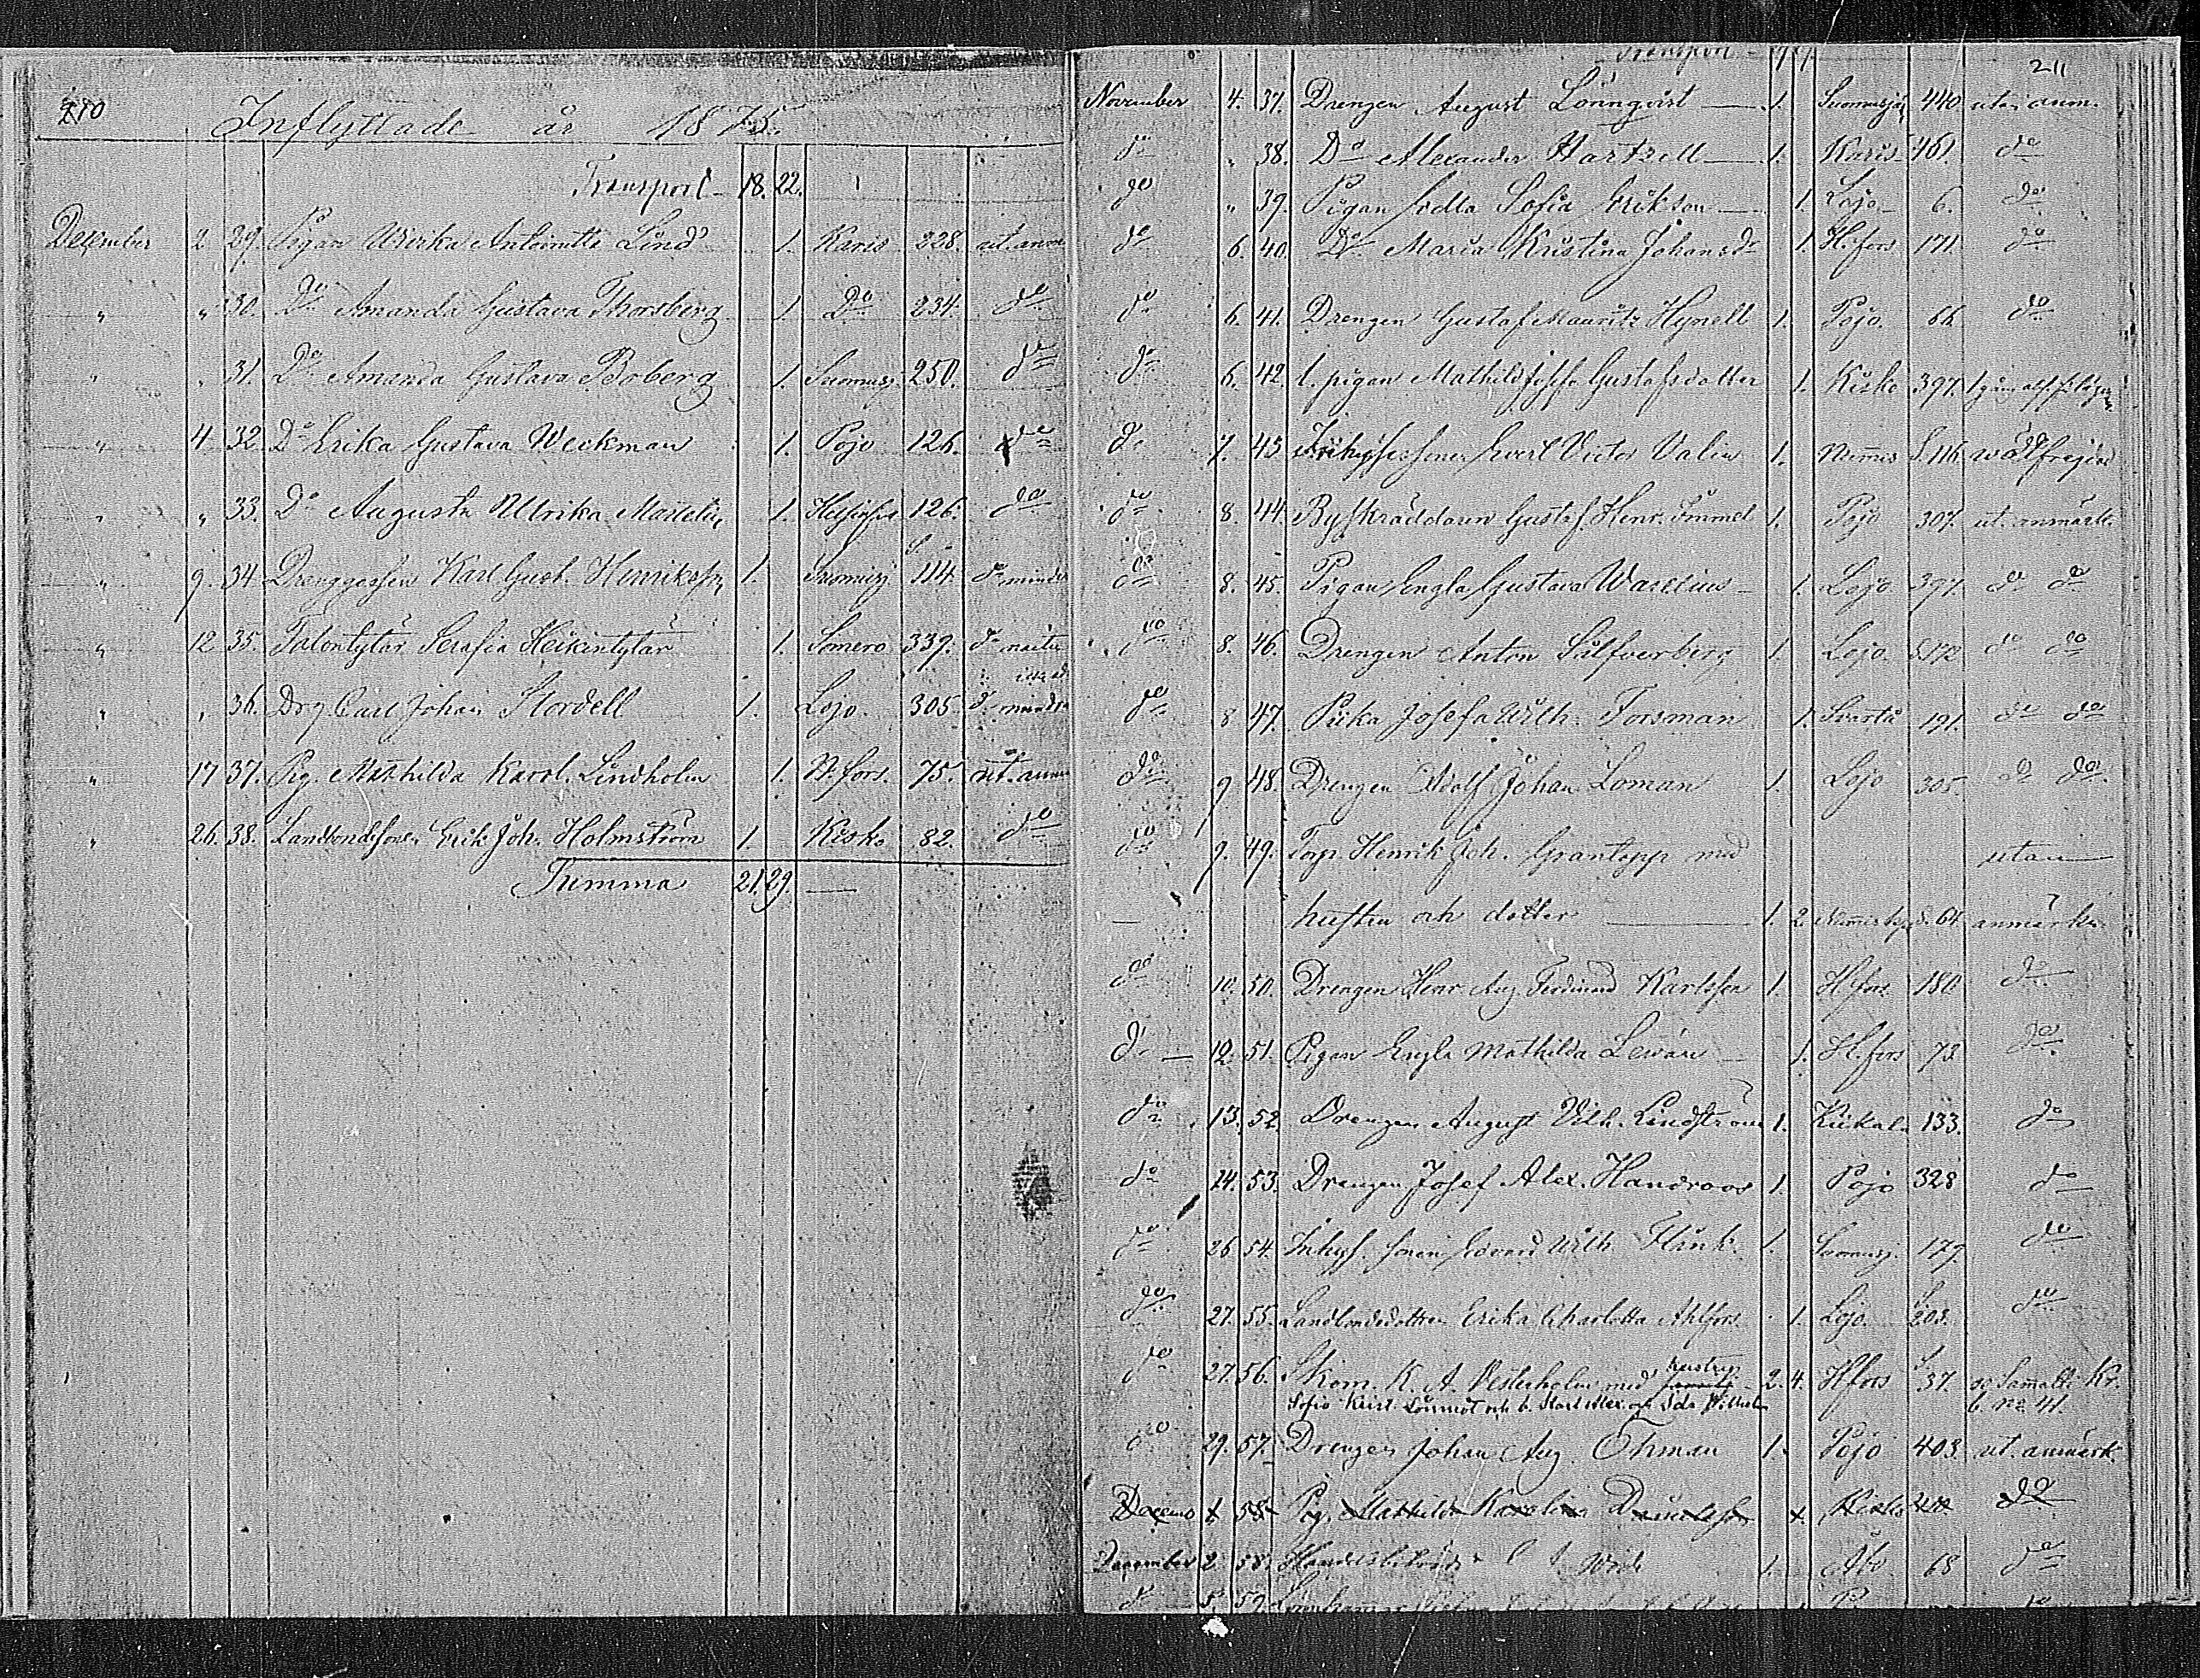 210
Inflyttade år 1875.
Transport 18. 22.
December 2 29. Pigan Ulrika Antoinette Lind 1. Karis 228. ut. anm
" " 30. Do Amanda Gustava Thorsberg 1. Do 234. do
" " 31. Do Amanda Gustava Boberg 1. Suomusj. 250. do
" 4. 32. Do Erika Gustava Weckman 1. Pojo 126. do
" " 33. Do Augusta Ulrika 1. Helsingfors 126. do
" 9. 34. Drenggossen Karl Gust. Henriksson 1. Suomusj S. 114. do mindre
" 12. 35. Talontytär Serafia Heikintytär 1. Somero 339. do
" " 36. Drg. Carl Johan Stordell 1. Lojo. 305. do mindre
" 17 37. Pig. Mathilda Karol. Lindholm 1. H.fors. 75. ut. anm
" 26. 38. Landbondeson Erik Joh. Holmström 1. Kisko 82. do
Summa 21. 29.
211
Transport
November 4. 37. Drengen August Lönnqvist 1. Suomusjä 440 utan anm.
do " 38. Do Alexander Hartzell 1. Karis 461. do
do " 39. Pigan Edla Sofia Erikson 1. Lojo 6. do
do 6. 40. Do Maria Kristina Johansdr 1. H.fors 171. do
do 6. 41. Drengen Gustaf Mauritz Hynell 1. Pojo. 66. do
do 6. 42. l. pigan Mathilda Gustafsdotter 1. Kisko 397.
do 7. 43 Inhysessonen Evert Victor Valin 1. Nummis S. 116 wälfrejdad
do 8. 44. Byskräddaren Gustaf Henr. Immel 1. Pojo 307. ut. anmärk.
do 8. 45. Pigan Engla Gustava Warelius 1. Lojo 397. do do
do 8. 46. Drengen Anton Silfverberg 1. Lojo. do do
do 8 47. Piika Josefa Wilh. Forsman 1. Svartå 191. do do
do 9 48. Drengen Adolf Johan Loman 1. Lojo 305. do do
do 9. 49. Torp. Henrik Joh. Grantopp med utan
hustru och dotter 1. 2. S. 64. anmärkn.
do 10. 50. Drengen Henr. Aug. Ferdinand Karlsson 1. H.fors 180 do
do 12. 51. Pigan Engla Mathilda Lewan 1. H.fors 73. do
do 13. 52. Drengen August Vilh. Lindström 1. Kiikala 133. do
do 14. 53. Drengen Josef Alex. Handroos 1. Pojo 328 do
do 26. 54. Inhys. sonen Edvard Wilh. Flink 1. Suomusj. 179. do
do 27. 55. Landbondedottren Erika Charlotta Ahlfors 1. Lojo S. 203. do
do 27. 56. Skom. K. A. Vesterholm med hustru 2. 4. H.fors S. 37.
Sofia Krist. och b. Karl Alex. och Ida Vilhelm
do 29. 57. Drengen Johan Aug. Öhman 1. Pojo 403. ut. anmärk.
Decemb 1. 58. Pig. Mathilda Karolina Danielsson 1. Kisko do
December 2. 58. 1. Åbo 68 do
do 5. 59.